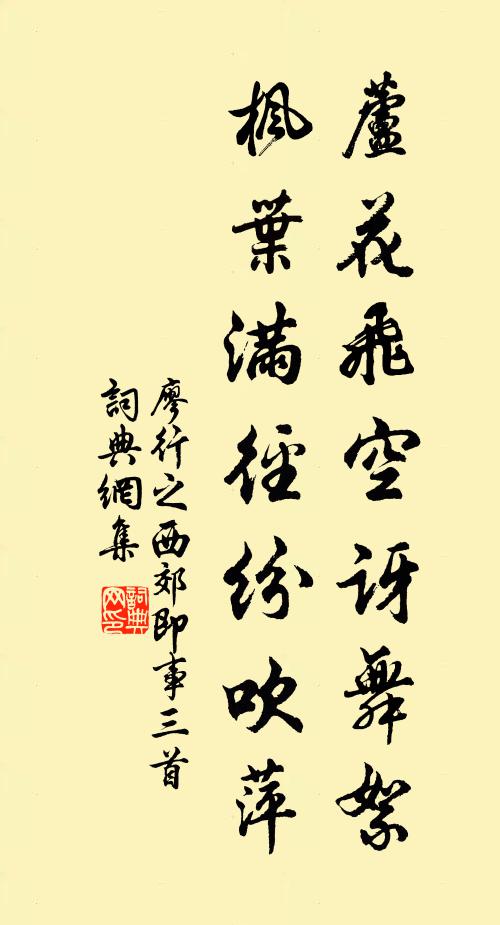 蘆花飛空訝舞絮
楓葉滿徑紛吹萍
廖行之西郊即事三首
詞典網集
詞典网印